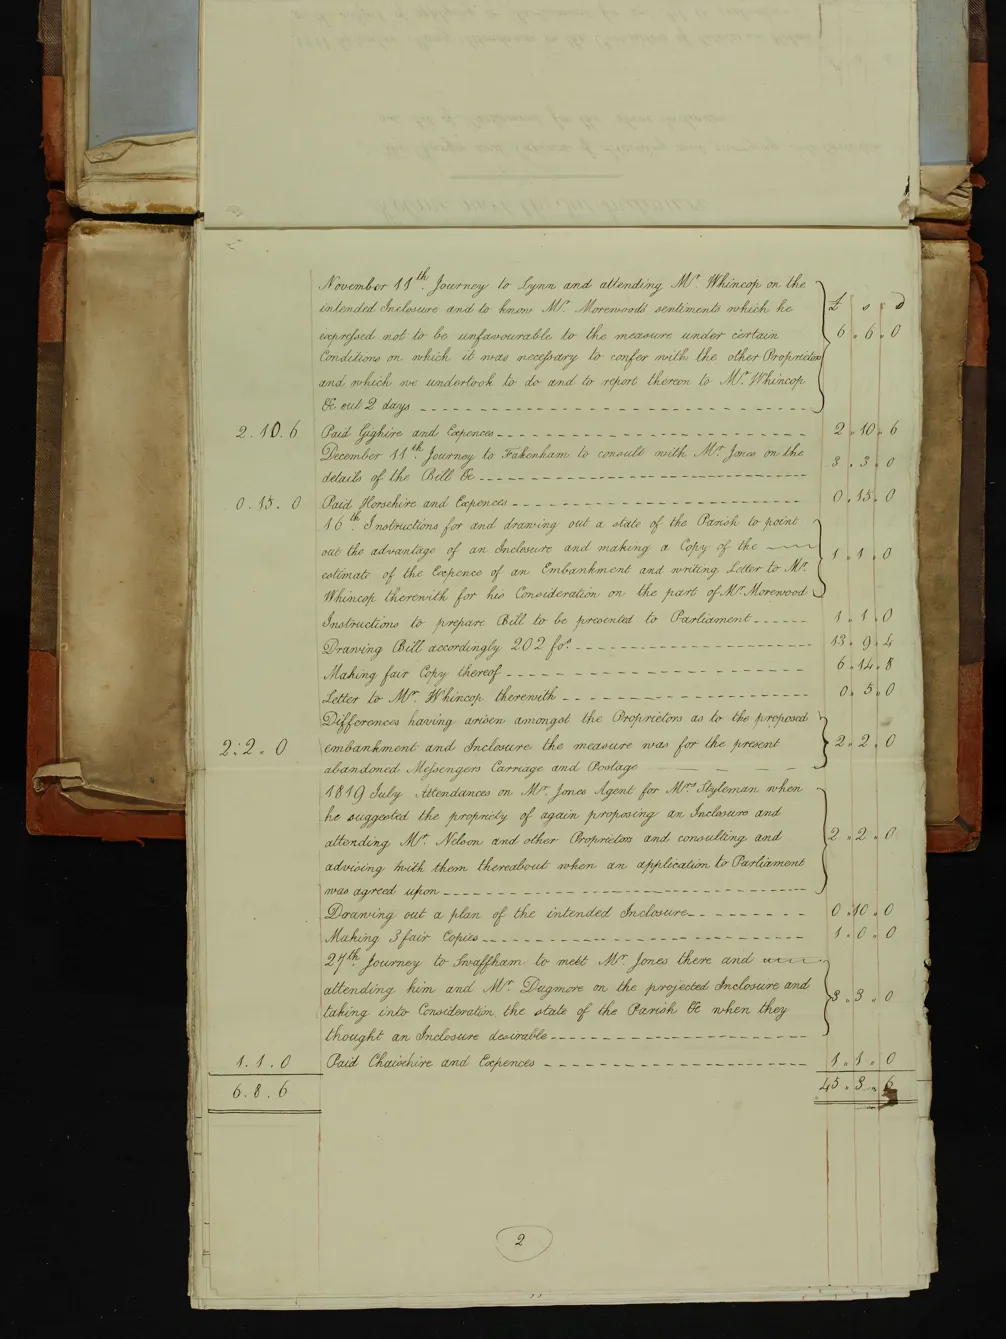 £ s d
November 11th. Journey to Lynn and attending Mr. Whincop on the
intended Inclosure and to know Mr. Morewoods sentiments which he
expressed not to be unfavourable to the measure under certain 6 . 6 . 0
Conditions on which it was necessary to confer with the other Proprietors
and which we undertook to do and to report thereon to Mr. Whincop
&c out 2 days
2 . 10 . 6 Paid Gighire and Expences 2 . 10 . 6
December 11th. Journey to Fakenham to consult with Mr. Jones on the
details of the Bill &c 3 . 3 . 0
0 . 15 . 0 Paid Horsehire and Expences 0 . 15 . 0
16th Instructions for and drawing out a state of the Parish to point
out the advantage of an Inclosure and making a Copy of the 1 . 1 . 0
estimate of the Expence of an Embankment and writing Letter to Mr.
Whincop therewith for his Consideration on the part of Mr. Morewood
Instructions to prepare Bill to be presented to Parliament 1 . 1 . 0
Drawing Bill accordingly 202 fos. 13 . 9 . 4
Making fair Copy thereof 6 . 14 . 8
Letter to Mr. Whincop therewith 0 . 5 . 0
Differences having arisen amongst the Proprietors as to the proposed
2 . 2 . 0 embankment and Inclosure the measure was for the present 2 . 2 . 0
abandoned Messengers Carriage and Postage
1819 July Attendances on Mr. Jones Agent for Mrs. Styleman when
he suggested the propriety of again proposing an Inclosure and
attending Mr. Nelson and other Proprietors and consulting and 2 . 2 . 0
advising with them thereabout when an application to Parliament
was agreed upon
Drawing out a plan of the intended Inclosure 0 . 10 . 0
Making 3 fair Copies 1 . 0 . 0
27th Journey to Swaffham to meet Mr. Jones there and
attending him and Mr. Dugmore on the projected Inclosure and 3 . 3 . 0
taking into Consideration the state of the Parish &c when they
thought an Inclosure desirable
1 . 1 . 0 Paid Chaisehire and Expences 1 . 1 . 0
6 . 8 . 6 45 . 3 . 6
2